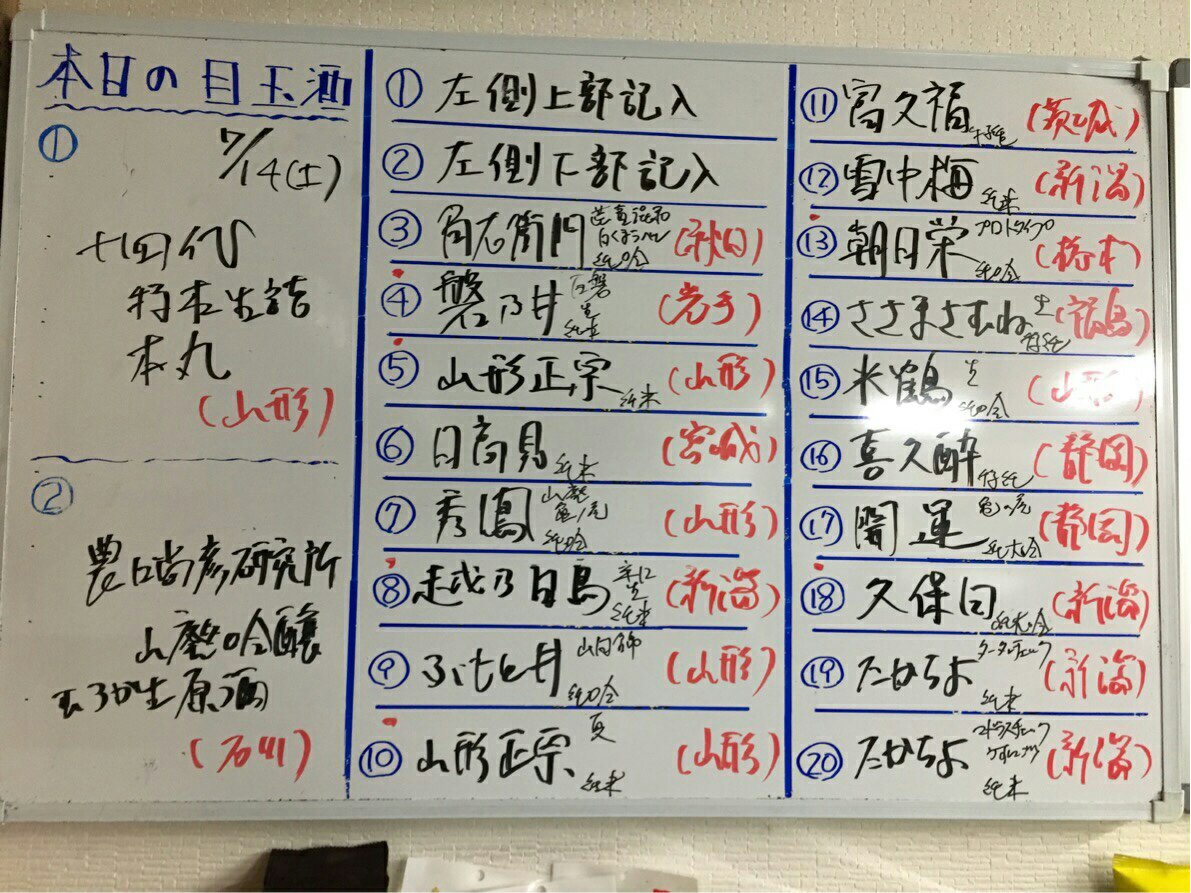 本日の目玉酒
①
7/14(土)
十四代
特本生詰
本丸
(山形)
②
農口尚彦研究所
山廃吟醸
むろか生原酒
(石川)
① 左側上部記入
② 左側下部記入
③ 角右衛門 純吟 (秋田)
④ 磐乃井 生 純米 (岩手)
⑤ 山形正宗 純米 (山形)
⑥ 日高見 純米 (宮城)
⑦ 秀鳳 山廃 亀ノ尾 純吟 (山形)
⑧ 越乃白鳥 辛口 生 純米 (新潟)
⑨ ふもと井 山田錦 純吟 (山形)
⑩ 山形正宗 夏 純米 (山形)
⑪ 富久福 特純 (茨城)
⑫ 雪中梅 純米 (新潟)
⑬ 朝日栄 プロトタイプ 純吟 (栃木)
⑭ ささまさむね 生 特純 (福島)
⑮ 米鶴 生 純吟 (山形)
⑯ 喜久酔 特純 (静岡)
⑰ 開運 亀の尾 純大吟 (静岡)
⑱ 久保田 純大吟 (新潟)
⑲ たからよ タータンチェック 純米 (新潟)
⑳ たからよ マドラスチェック 純米 (新潟)